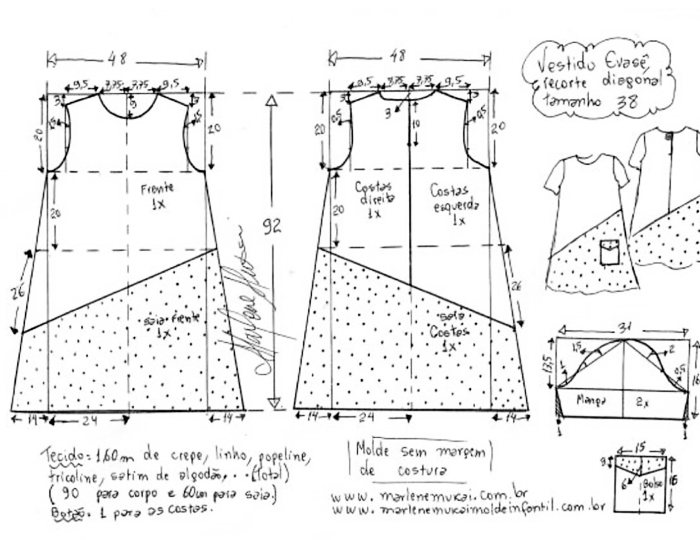 48
9,5 7,75 7,75 9,5
3
3
9
1,5
0,5
20
20
Frente
1x
20
26
Saia frente
1x
14
24
14
92
Marlene Mukai
48
9,5 7,75 7,75 9,5
3
3
3
10
0,5
0,5
20
20
Costas
direita
1x
Costas
esquerda
1x
20
26
saia
Costas
1x
14
24
14
Vestido Evasê
recorte diagonal
tamanho 38
31
13,5
1,5
2
1
0,5
16
Manga
2x
1
1
15
9
6
Bolso
1x
16
Tecido: 1,60m de crepe, linho, popeline,
tricoline, satim de algodão... (total)
( 90 para corpo e 60cm para saia.)
Botão. 1 para as costas.
Molde sem margem
de costura
www.marlenemukai.com.br
www.marlenemukaimoldeinfantil.com.br